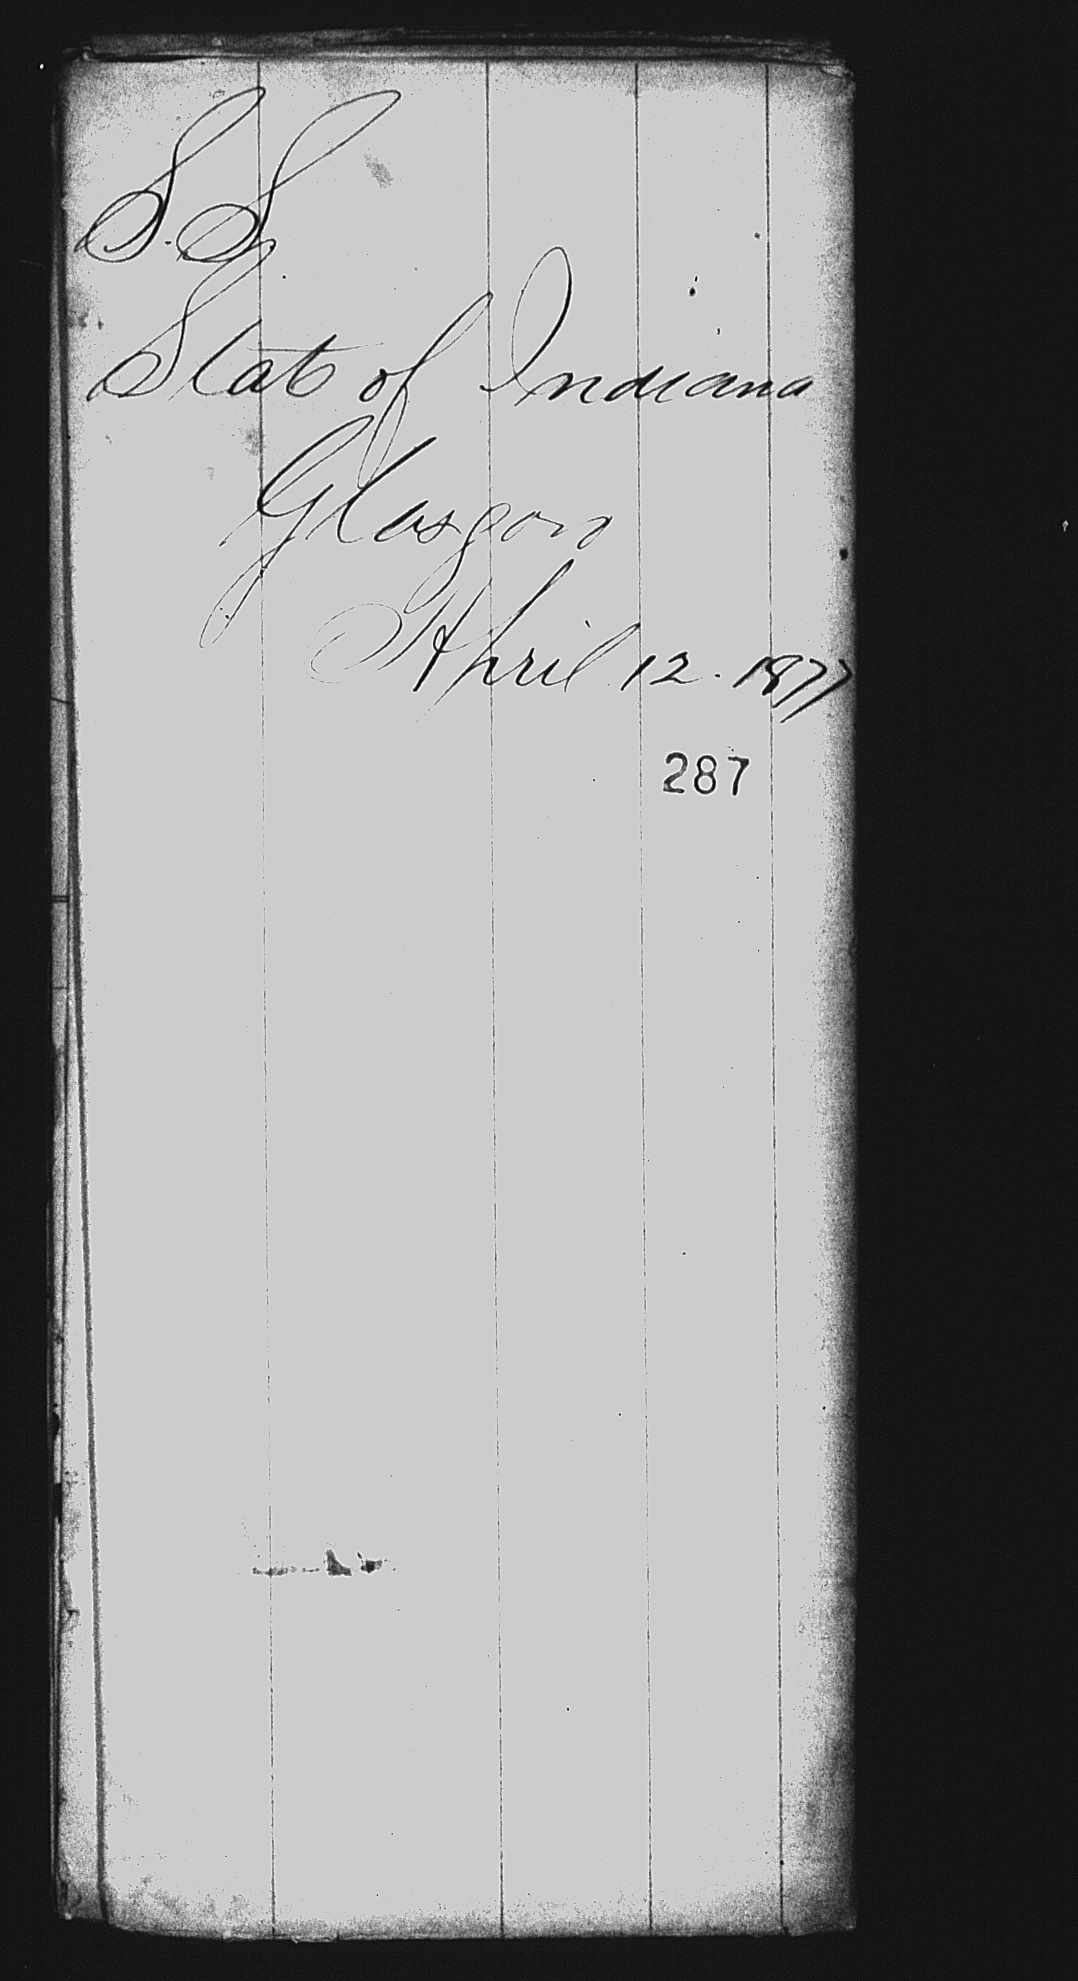 S.S
State of Indiana
Glasgow
April 12. 1877
287